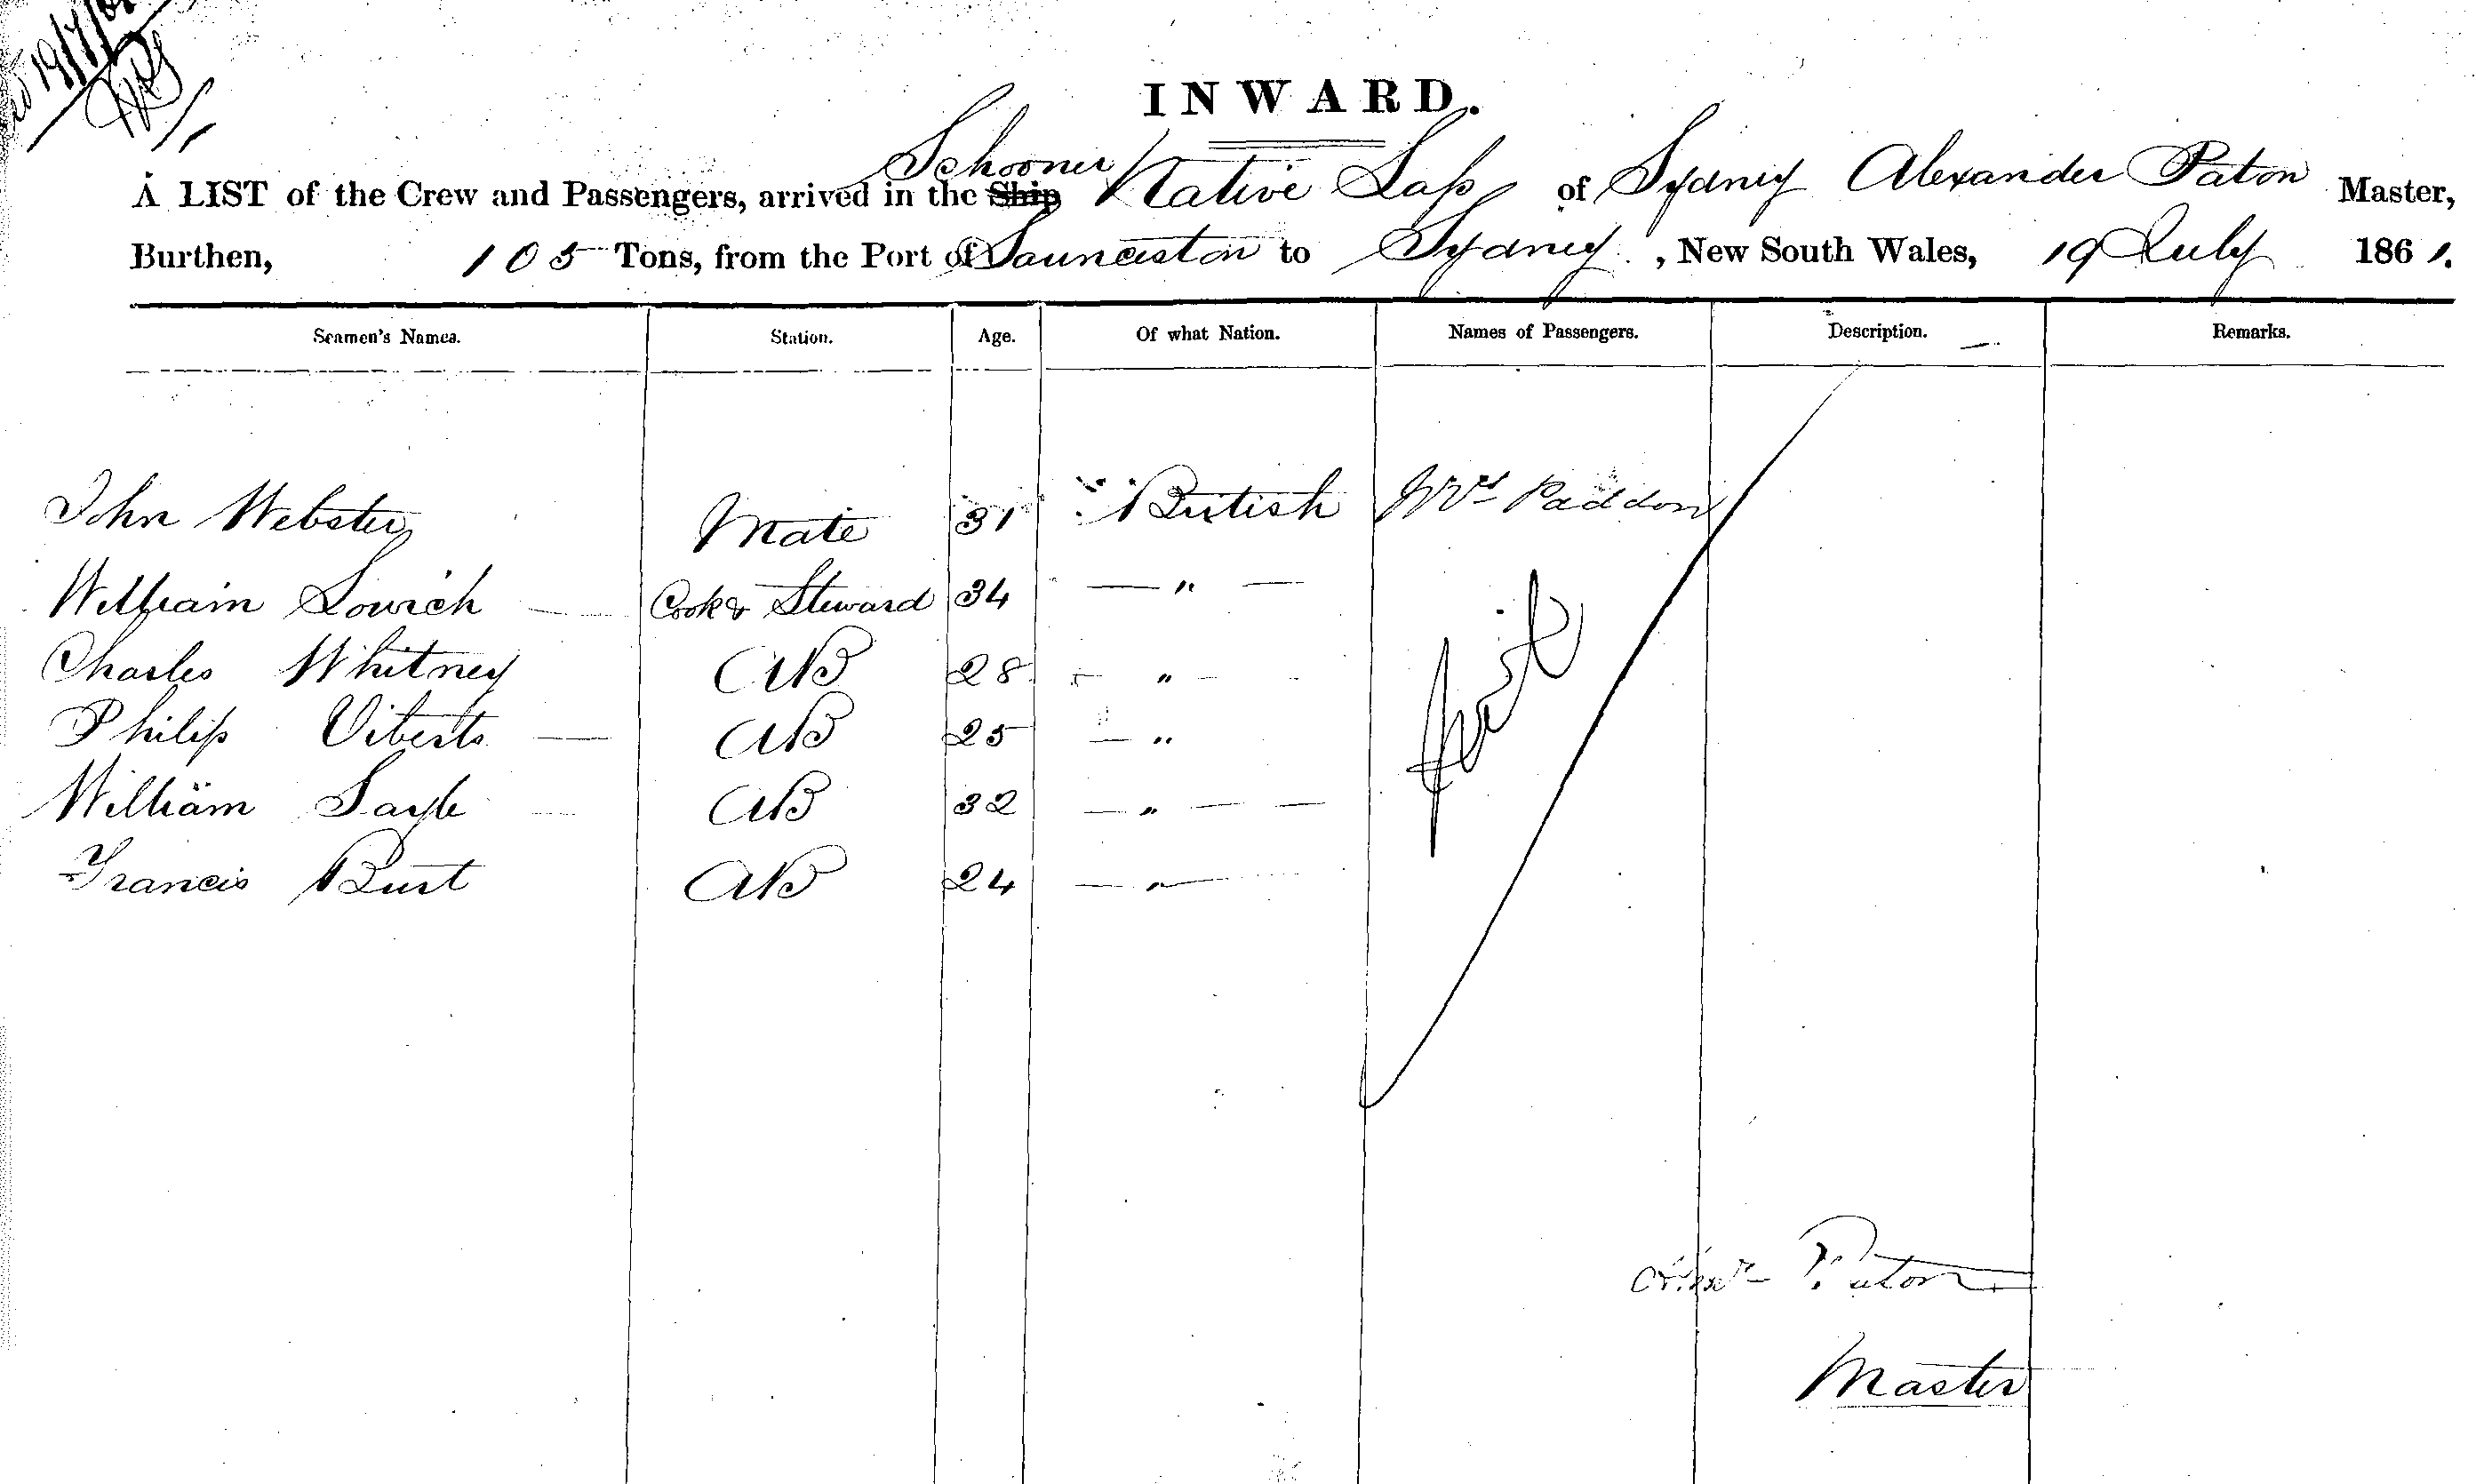 19/7/
INWARD.
Schooner
A LIST of the Crew and Passengers, arrived in the Ship Native Lass of Sydney Alexander Paton Master,
Burthen, 105 Tons, from the Port of Launceston to Sydney, New South Wales, 19 July 1861.
Seamen's Names. Station. Age. Of what Nation. Names of Passengers. Description. Remarks.
John Webster Mate 31 British Mrs Paddon
William Lowich Cook & Steward 34 — " —
Charles Whitney AB 28 — " —
Philip Viberts — AB 25 — "
William Sayle AB 32 — " — —
Francis Burt AB 24 — " —
Alexr Paton
Master